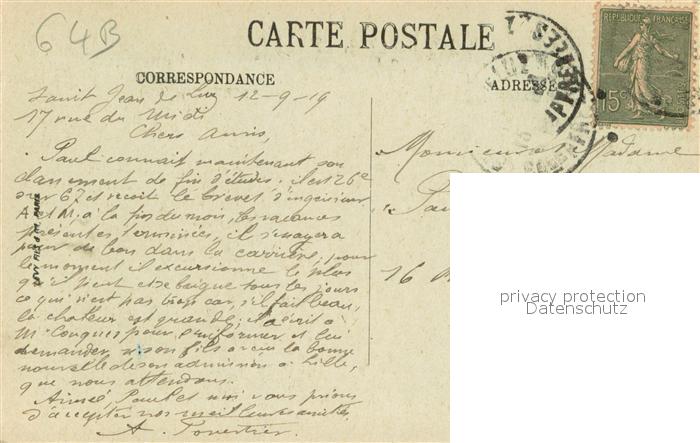 64B
CARTE POSTALE
CORRESPONDANCE
ADRESSE
RÉPUBLIQUE FRANÇAISE
15c
Saint Jean de Luz 12-9-19
17 rue du Midi
Chers amis,
Paul connait maintenant son
classement de fin d'études: il est 26e
sur 67 et reçoit le brevet d'ingénieur
A et M. à la fin du mois, les vacances
présentes terminées, il songera
pour de bon dans la carrière, pour
le moment il excursionne le plus
qu'il peut et se baigne tous les jours
ce qui n'est pas trop car, s'il fait beau,
la chaleur est grande. Il a écrit à
M. pour s'informer et lui
demander si son fils a eu la bonne
nouvelle de son admission à Lille,
que nous attendons.
Aimée, Paul et moi vous prions
d'accepter nos meilleures amitiés.
A.
Monsieur et Madame
16
privacy protection
Datenschutz